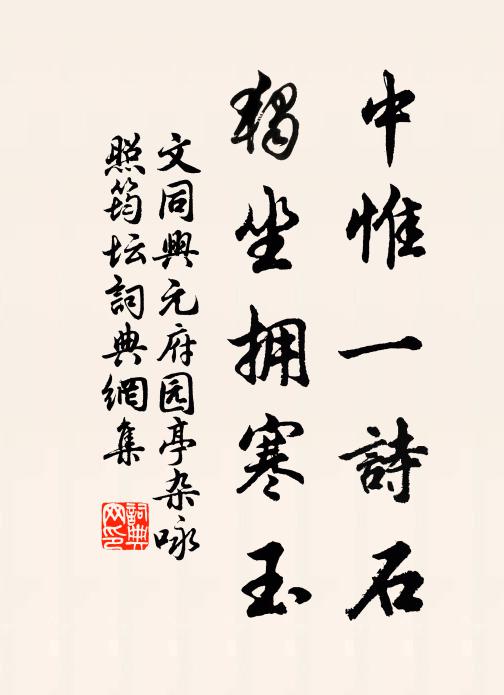 中惟一詩石
獨坐拥寒玉
文同興元府园亭杂咏
照筠坛詞典網集
詞典
网印